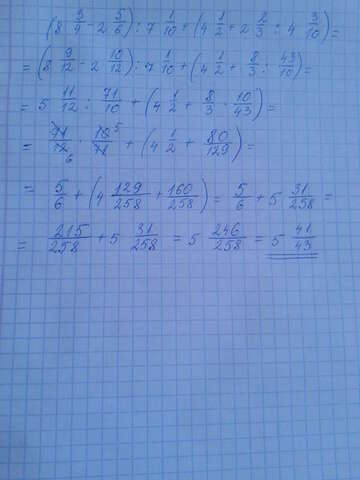 (8 3/4 - 2 5/6) : 7 1/10 + (4 1/2 + 2 2/3 : 4 3/10) =
= (8 9/12 - 2 10/12) : 7 1/10 + (4 1/2 + 8/3 : 43/10) =
= 5 11/12 : 71/10 + (4 1/2 + 8/3 · 10/43) =
= 71/12 6 · 10 5/71 + (4 1/2 + 80/129) =
= 5/6 + (4 129/258 + 160/258) = 5/6 + 5 31/258 =
= 215/258 + 5 31/258 = 5 246/258 = 5 41/43